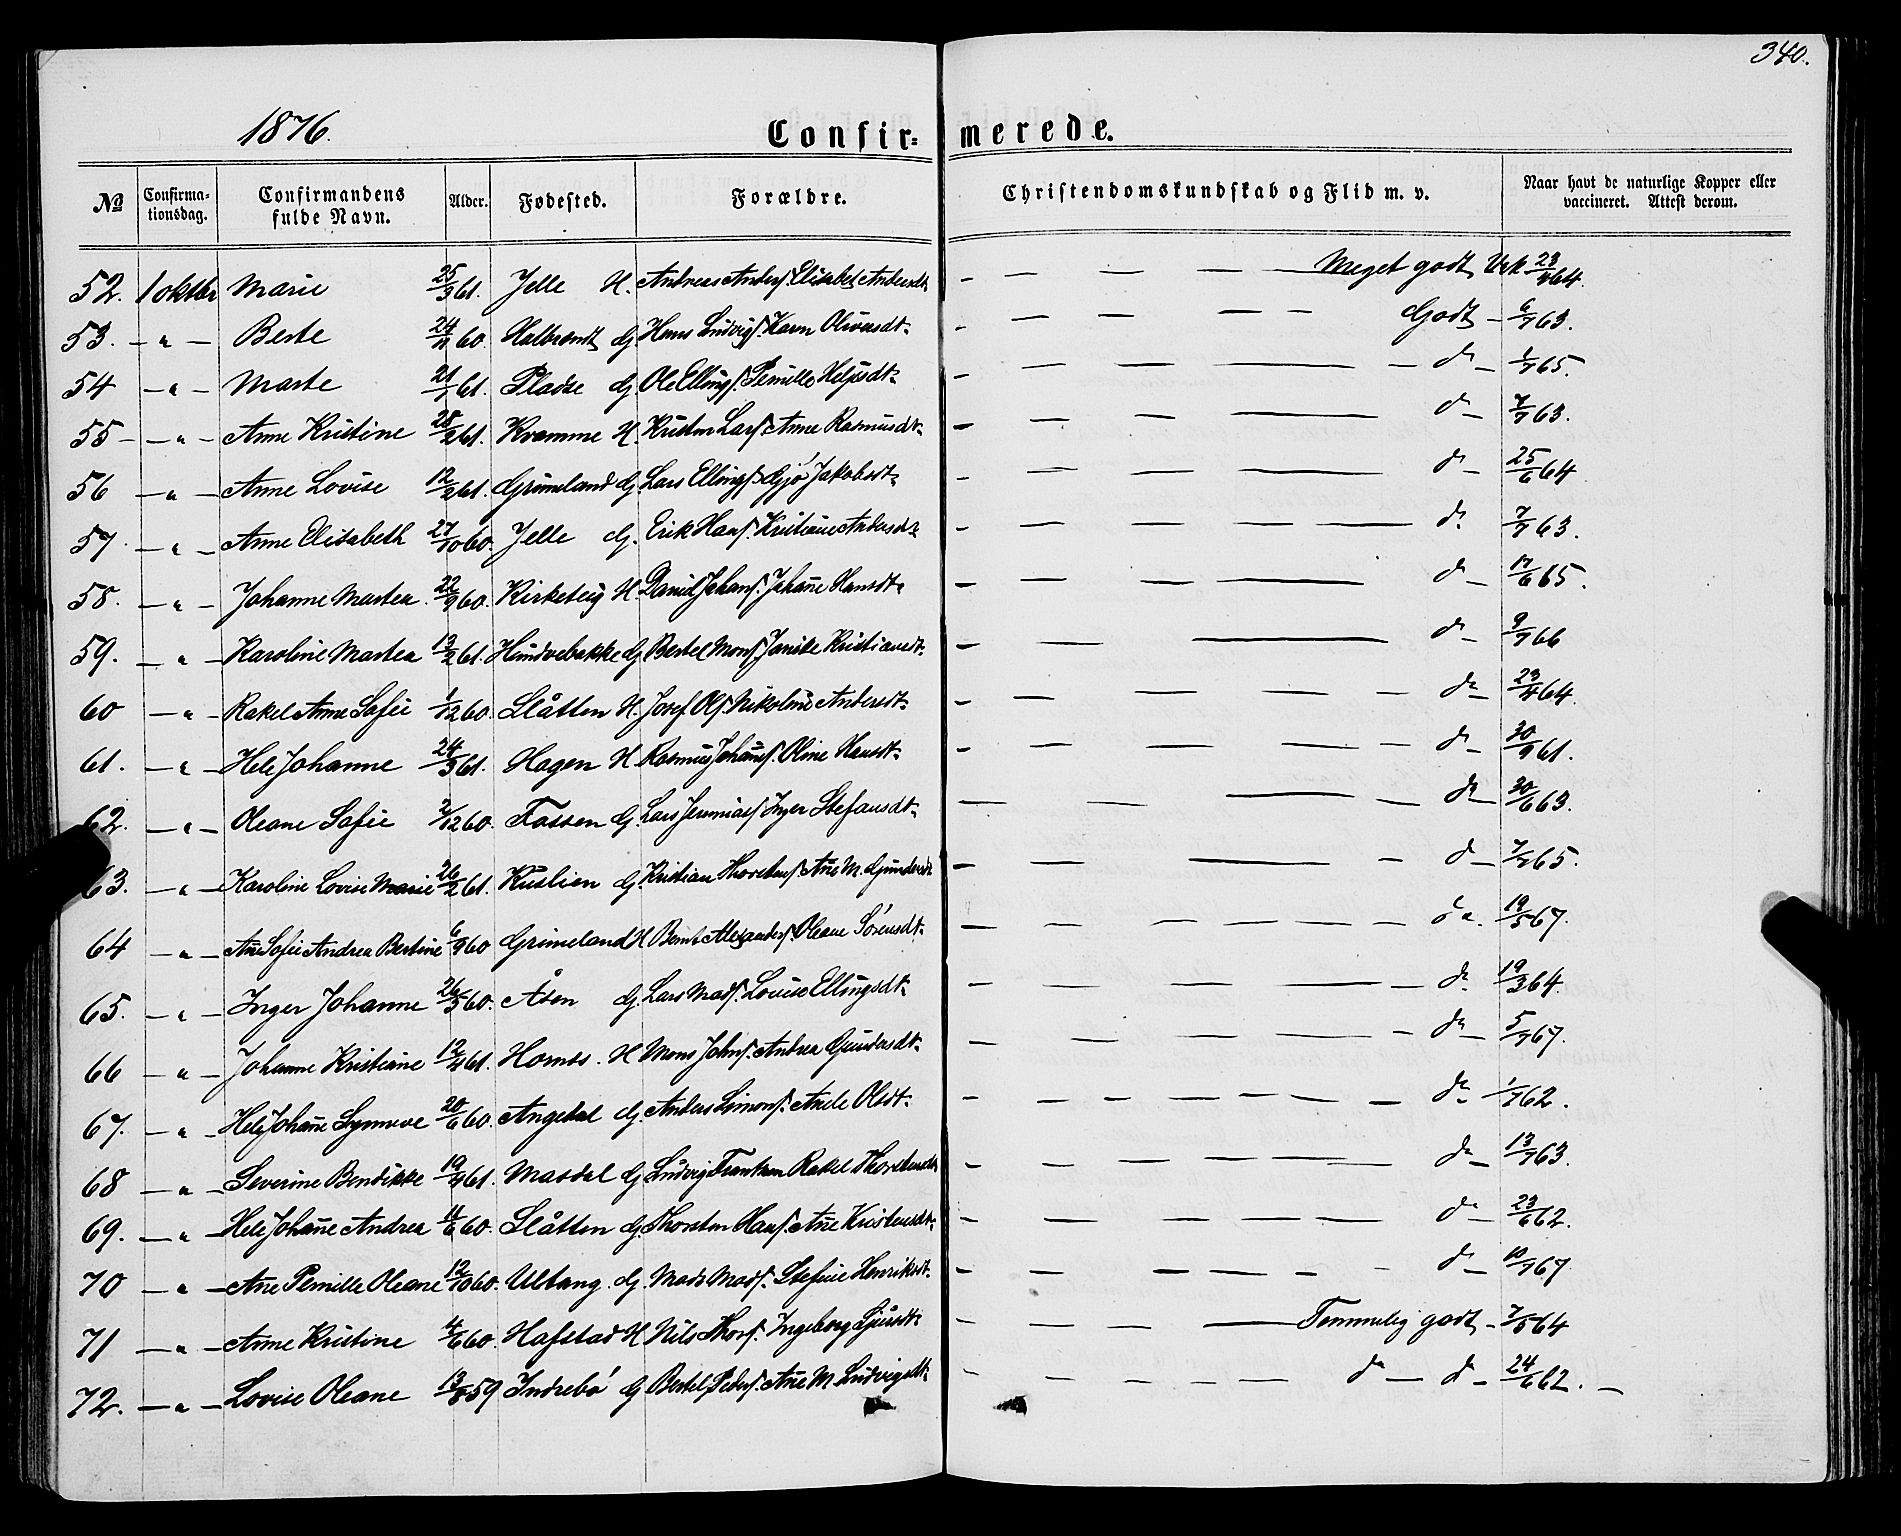 340.
1876.
Confir= merede.
No Confirmationsdag. Confirmandens fulde Navn. Alder. Fødested. Forældre. Christendomskundskab og Flid m. v. Naar havt de naturlige Kopper eller vaccineret. Attest derom.
52. 1 oktbr Marie 25/3 61. Jelle H. Andreas Anders. Elisabet Andersdt. – — — — — Meget godt Vck 23/4 64.
53. – " – Berte 24/11 60. Halbrendt G. Hans Ludvigs. Karn Oliversdt. – — — — — Godt – 6/7 63.
54 – " – Marte 21/1 61. Pladse G. Ole Ellings. Pernille Heljesdt. – — — — — do – 1/7 65.
55 – – " – Anne Kristine 28/2 61. Kramme H. Kristen Lars. Anne Rasmusdt. – — — — do – 7/7 63.
56 – " – Anne Lovise 12/2 61. Grimeland G. Lars Ellings. Gjø Jakobsdt. – — — — — do – 25/6 64
57 – " – Anne Elisabeth 27/10 60. Jelle G. Erik Hans. Kristiane Andersdt. – — — — — do 7/7 63.
58. – " – Johanne Martea. 22/9 60. Kirketeig H. Daniel Johans. Johanne Hansdt. – — — — — do – 17/6 65.
59. – " – Karoline Martea 13/2 61. Hundvebakke G. Bertel Mons. Janike Kristiansdt. – — — do – 9/7 66
60 – " – Rakel Anne Sofie 1/12 60. Slåtten H. Josef Ols. Nikoline Andersdt. – — — — — – do – 23/4 64.
61. – " – Hele Johanne 24/3 61. Hagen H. Rasmus Johans. Oline Hansdt. – — — — — do – 30/9 61.
62. – " – Oleane Sofie 2/12 60. Fossen G. Lars Jeremias. Inger Stefansdt. — — — — do – 30/6 63.
63. – " – Karoline Lovise Marie 26/2 61. Kuslien G. Kristian Thorstens. Ane M. Gundersdt. – — — – do – 7/7 65.
64 – " – Ane Sofie Andrea Bertine 6/9 60 Grimeland H Bernt Alexanders. Oleane Sørensdt. — — — — — — do. 19/5 67.
65. – " – Inger Johanne 26/5 60. Åsen G. Lars Mads. Louise Ellingsdt. – — — — — — do. 19/3 64.
66 – " – Johanne Kristiane 12/4 61. Hornes. H Mons Johns. Andrea Gundersdt. — — — — – do – 5/7 67.
67. – " – Hele Johane Synneve 20/6 60. Angedal G. Anders Simons. Anele Olsdt. – — — — — — — do. 1/7 62.
68 – " – Severine Bendikke 19/4 61. Masdal G. Ludvig Frantsen Rakel Thorstensdt. – — — — — — do – 13/7 63.
69. – " – Hele Johane Andrea 11/6 60. Slåtten G. Thorsten Hans. Ane Kristensdt. – — — — do – 23/6 62.
70 – " – Ane Pernille Oleane 12/10 60. Ullang. G. Mads Mads. Stefine Henriksdt. – — — — — – do – 10/7 67.
71 – " – Anne Kristine 4/6 60. Hafstad H Nils Thors. Ingeborg Sjursdt. – — — — — Temmelig godt – 7/5 64
72. – " – Lovise Oleane 13/8 59 Indrebø G Bertel Peders. Ane M. Ludvigsdt. – — — — — — do — do – 24/6 62. —